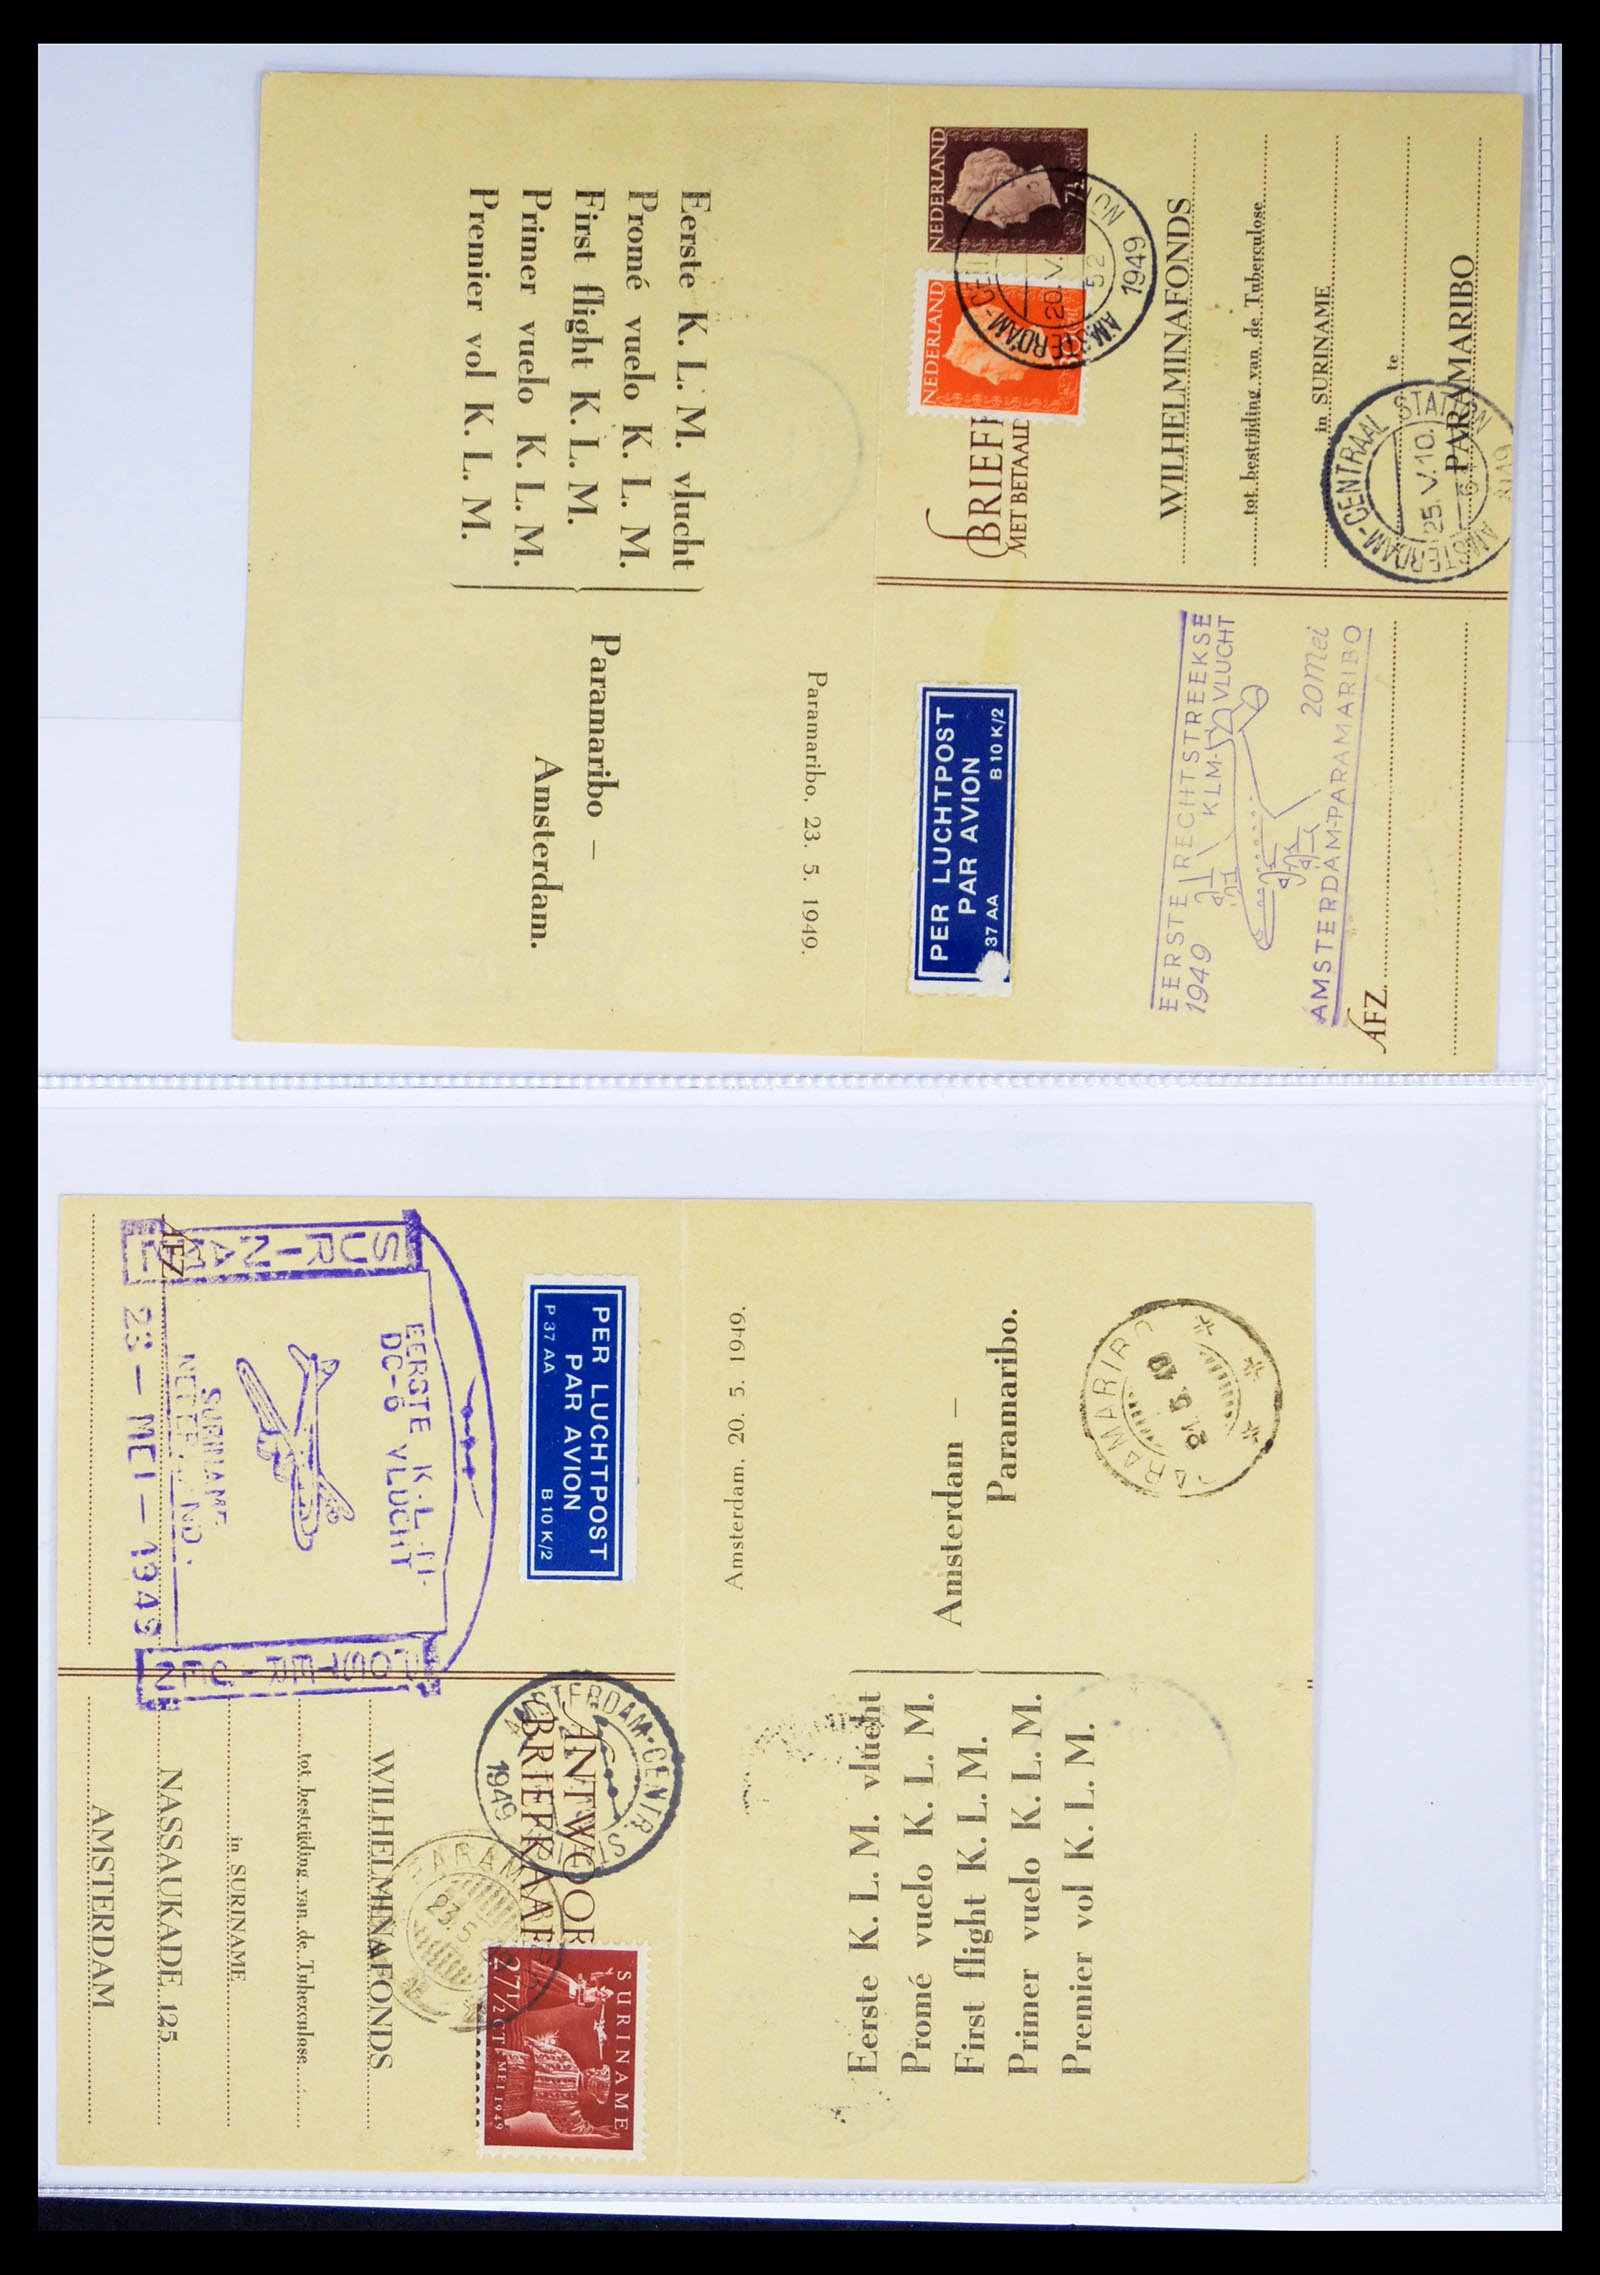 Eerste K. L. M. vlucht
Promé vuelo K. L. M.
First flight K. L. M.
Primer vuelo K. L. M.
Premier vol K. L. M.
Paramaribo –
Amsterdam.
Paramaribo, 23. 5. 1949.
NEDERLAND
7½ cent
NEDERLAND
1949
BRIEFK
MET BETAALD
WILHELMINAFONDS
tot bestrijding van de Tuberculose
in SURINAME
te
PARAMARIBO
AMSTERDAM-CENTRAAL STATION
25.V.10.
PER LUCHTPOST
PAR AVION
37 AA B 10 K/2
EERSTE RECHTSTREEKSE
1949 KLM-VLUCHT
20 mei
AMSTERDAM-PARAMARIBO
AFZ.
PARAMARIBO
21. 5. 49
Amsterdam –
Paramaribo.
Eerste K. L. M. vlucht
Promé vuelo K. L. M.
First flight K. L. M.
Primer vuelo K. L. M.
Premier vol K. L. M.
Amsterdam, 20. 5. 1949.
PER LUCHTPOST
PAR AVION
P 37 AA B 10 K/2
SURINAME
EERSTE K.L.M.
DC-6 VLUCHT
SURINAME
23 – MEI – 1949
AFZ
ANTWOOR
BRIEFKAAR
1949
SURINAME
27½ CT MEI 1949
WILHELMINAFONDS
tot bestrijding van de Tuberculose
in SURINAME
NASSAUKADE 125
AMSTERDAM